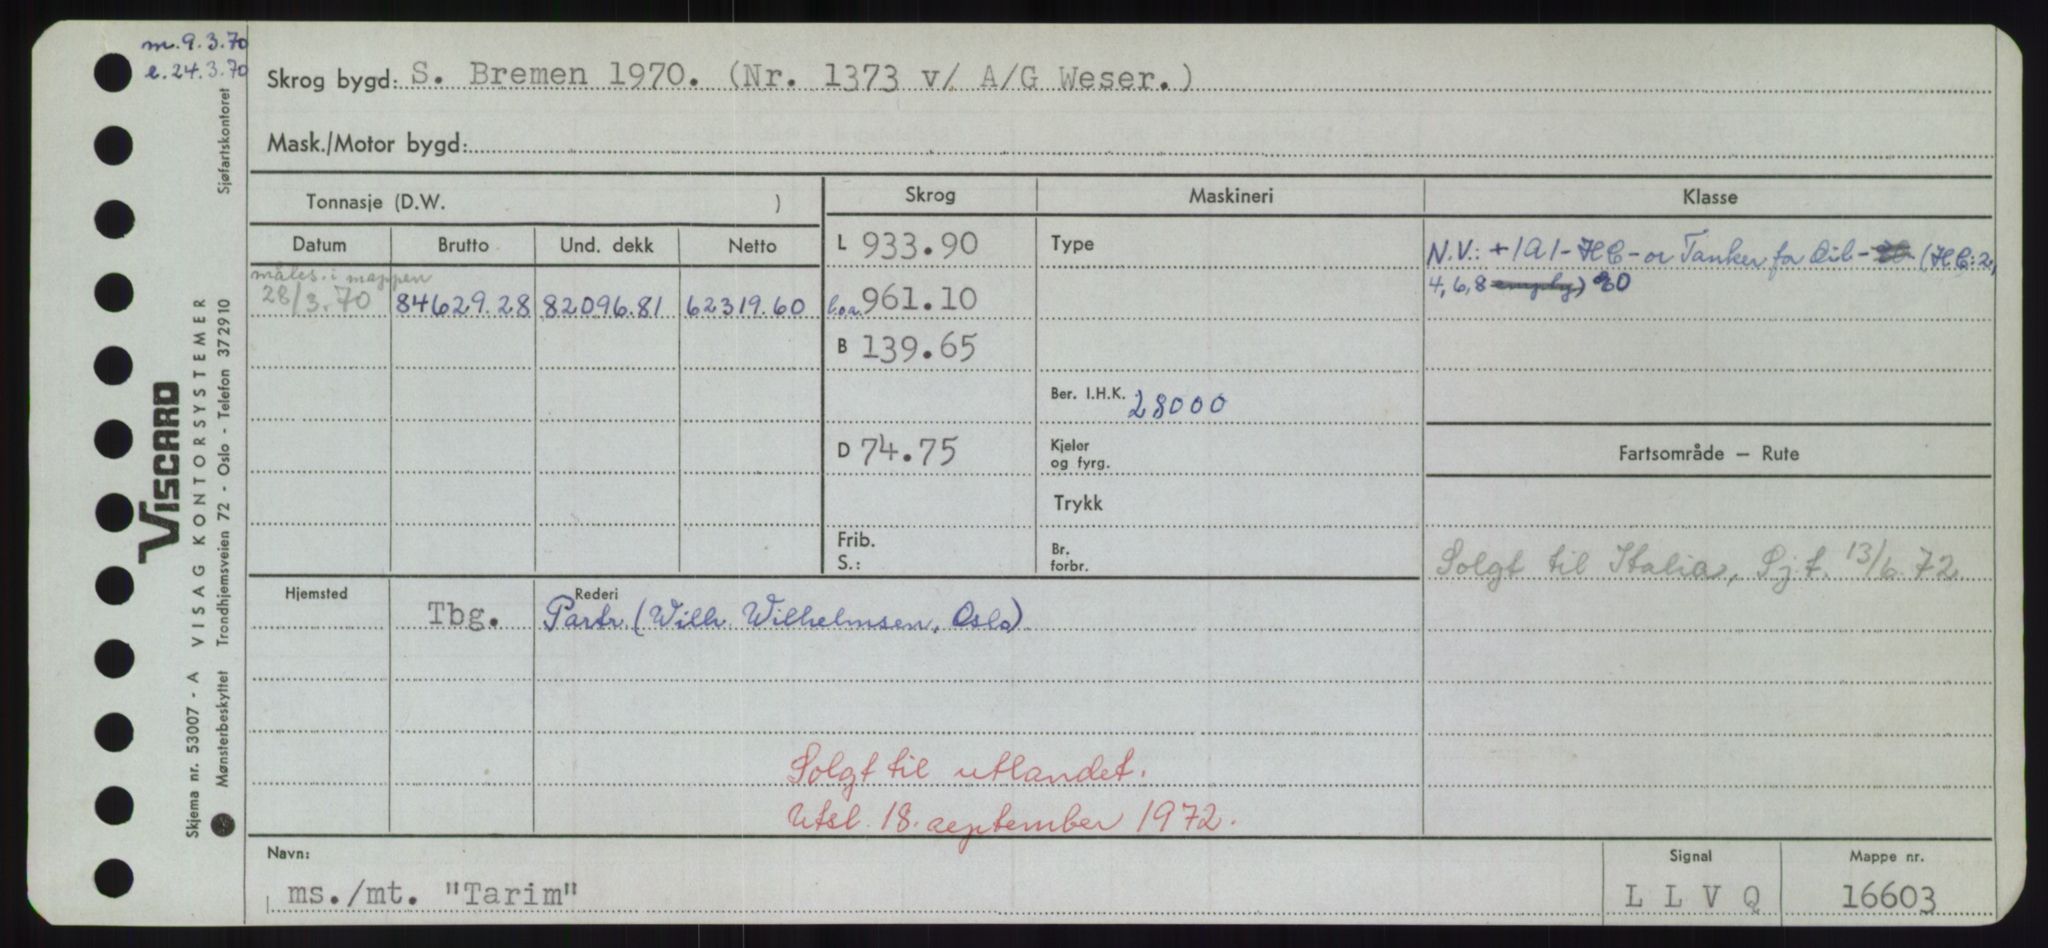 m. 9.3.70
e. 24.3.70
Skrog bygd: S. Bremen 1970. (Nr. 1373 v/ A/G Weser.)
Mask./Motor bygd:
Tonnasje (D.W. )
Skrog
Maskineri
Klasse
Datum
Brutto
Und. dekk
Netto
måles. i mappen
28/3.70
84629.28
82096.81
62319.60
L 933.90
l.o.a. 961.10
B 139.65
D 74.75
Frib.
S.:
Type
Ber. I.H.K. 28000
Kjeler
og fyrg.
Trykk
Br.
forbr.
N.V.: +1A1-HC-or Tanker for Oil- (HC: 2,
4, 6, 8 empty) 80
Fartsområde — Rute
Solgt til Italia, Sj.t. 13/6.72
Hjemsted
Rederi
Tbg.
Partr. (Wilh. Wilhelmsen, Oslo)
Solgt til utlandet.
Utsl. 18. september 1972.
Navn:
ms./mt. "Tarim"
Signal
L L V Q
Mappe nr.
16603
VISCARD
Skjema nr. 53007 - A VISAG KONTORSYSTEMER
Mønsterbeskyttet Trondhjemsveien 72 - Oslo - Telefon 372910 Sjøfartskontoret